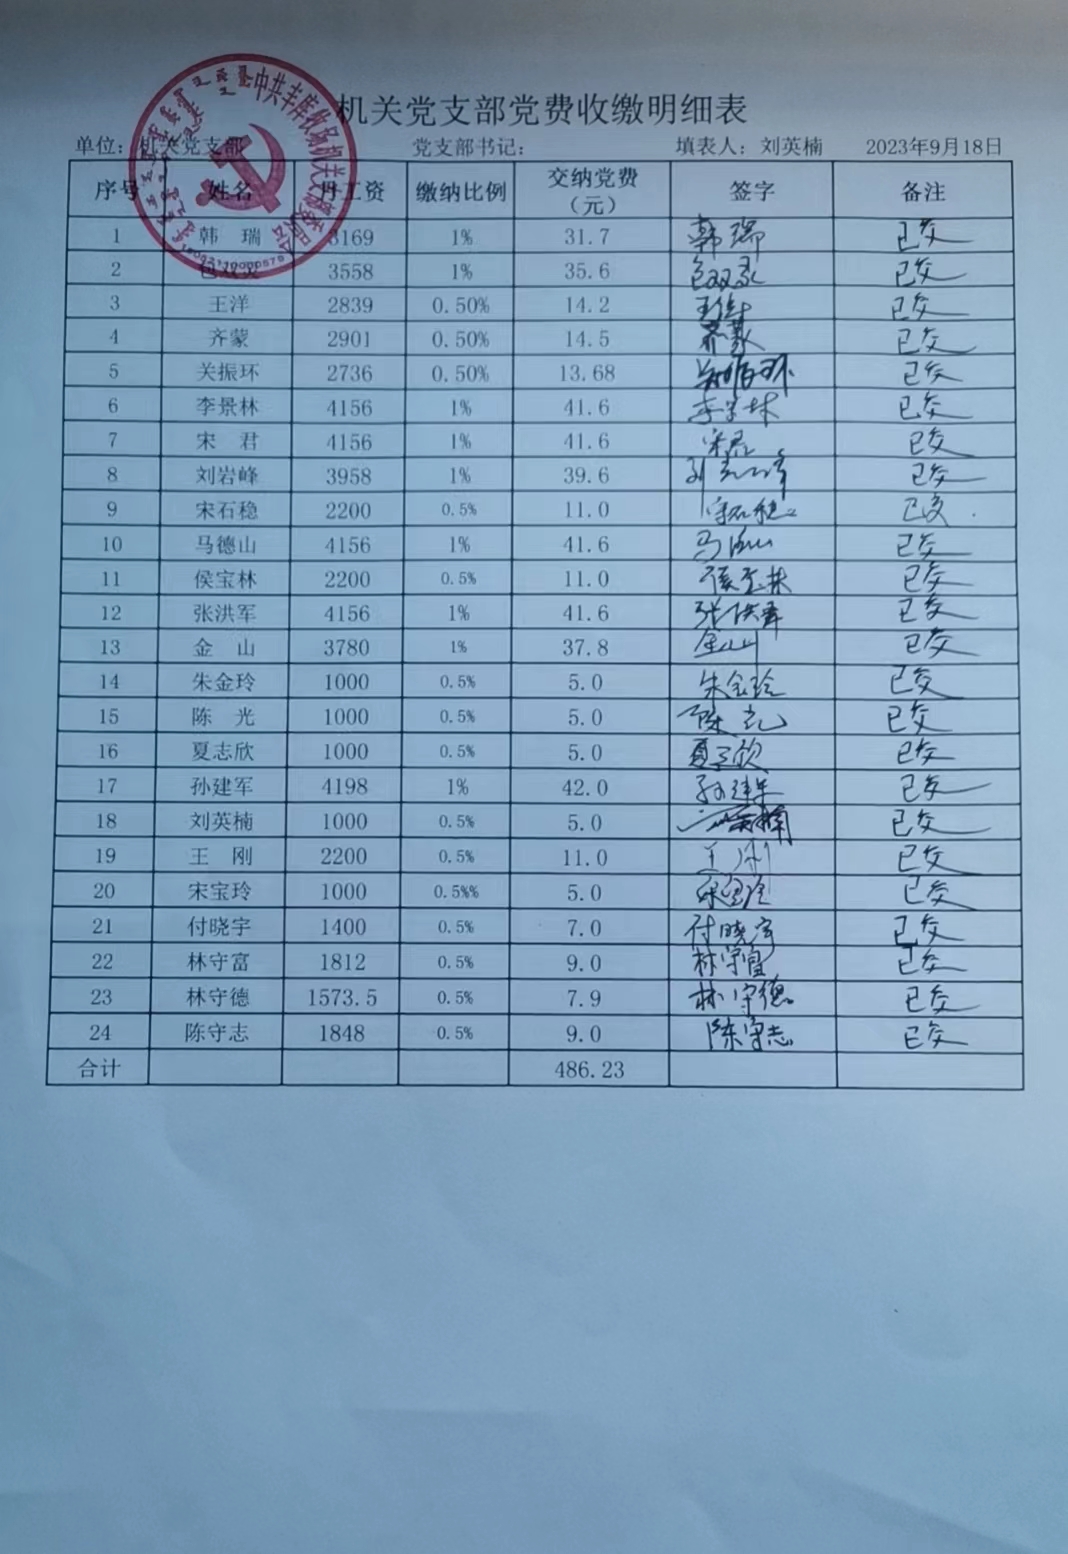 中共丰库牧场机关支部委员会
机关党支部党费收缴明细表
单位：机关党支部 党支部书记： 填表人：刘英楠 2023年9月18日
序号 姓名 月工资 缴纳比例 交纳党费（元） 签字 备注
1 韩 瑞 3169 1% 31.7 韩瑞 已交
2 包双文 3558 1% 35.6 已交
3 王洋 2839 0.50% 14.2 王洋 已交
4 齐蒙 2901 0.50% 14.5 齐蒙 已交
5 关振环 2736 0.50% 13.68 已交
6 李景林 4156 1% 41.6 李景林 已交
7 宋 君 4156 1% 41.6 宋君 已交
8 刘岩峰 3958 1% 39.6 刘岩峰 已交
9 宋石稳 2200 0.5% 11.0 宋石稳 已交
10 马德山 4156 1% 41.6 马德山 已交
11 侯宝林 2200 0.5% 11.0 侯宝林 已交
12 张洪军 4156 1% 41.6 张洪军 已交
13 金 山 3780 1% 37.8 金山 已交
14 朱金玲 1000 0.5% 5.0 朱金玲 已交
15 陈 光 1000 0.5% 5.0 陈光 已交
16 夏志欣 1000 0.5% 5.0 夏志欣 已交
17 孙建军 4198 1% 42.0 孙建军 已交
18 刘英楠 1000 0.5% 5.0 刘英楠 已交
19 王 刚 2200 0.5% 11.0 王刚 已交
20 宋宝玲 1000 0.5%% 5.0 宋宝玲 已交
21 付晓宇 1400 0.5% 7.0 付晓宇 已交
22 林守富 1812 0.5% 9.0 林守富 已交
23 林守德 1573.5 0.5% 7.9 林守德 已交
24 陈守志 1848 0.5% 9.0 陈守志 已交
合计 486.23